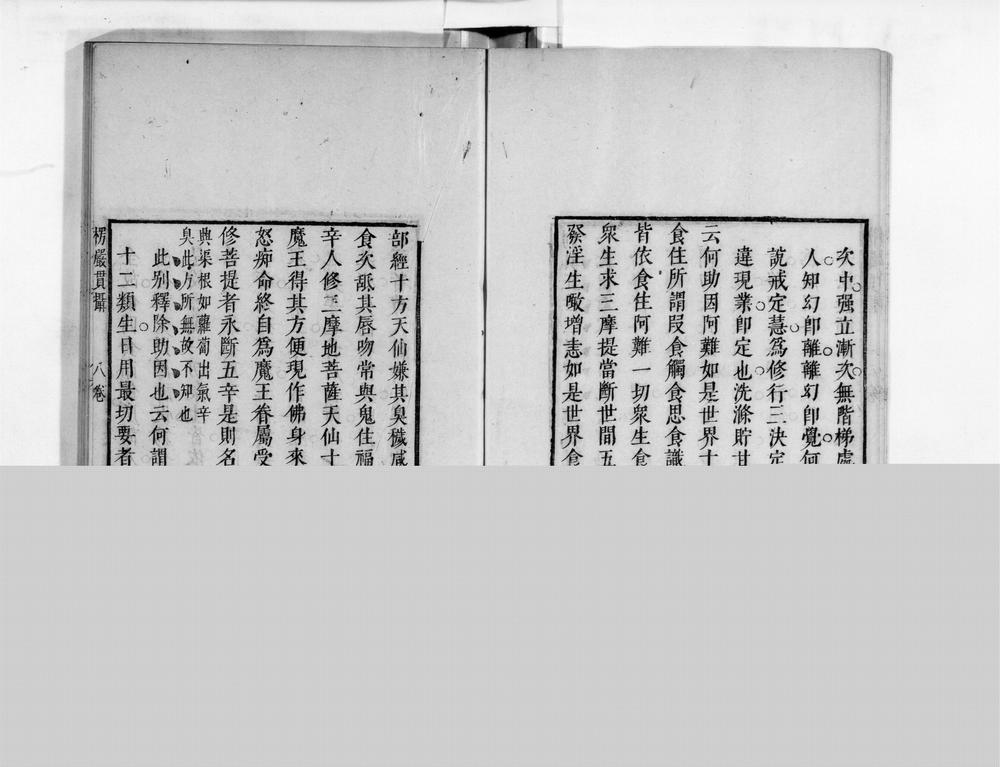 次中强立漸次無階梯處
人知幻卽離離幻卽覺何
說戒定慧爲修行三決定
違現業卽定也洗滌貯甘
云何助因阿難如是世界十
食住所謂段食觸食思食識
皆依食住阿難一切衆生食
衆生求三摩提當斷世間五
發淫生噉增恚如是世界食
部經十方天仙嫌其臭穢咸
食次舐其唇吻常與鬼住福
辛人修三摩地菩薩天仙十
魔王得其方便現作佛身來
怒痴命終自爲魔王眷屬受
修菩提者永斷五辛是則名
興渠根如蘿蔔出氣辛
臭此方所無故不知也
此別釋除助因也云何謂
十二類生日用最切要者
楞嚴貫攝 八卷